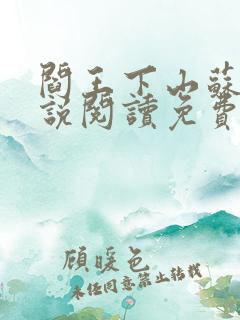 閻王下山蘇
說閱讀免費
顧暖色
未經同意禁止轉載